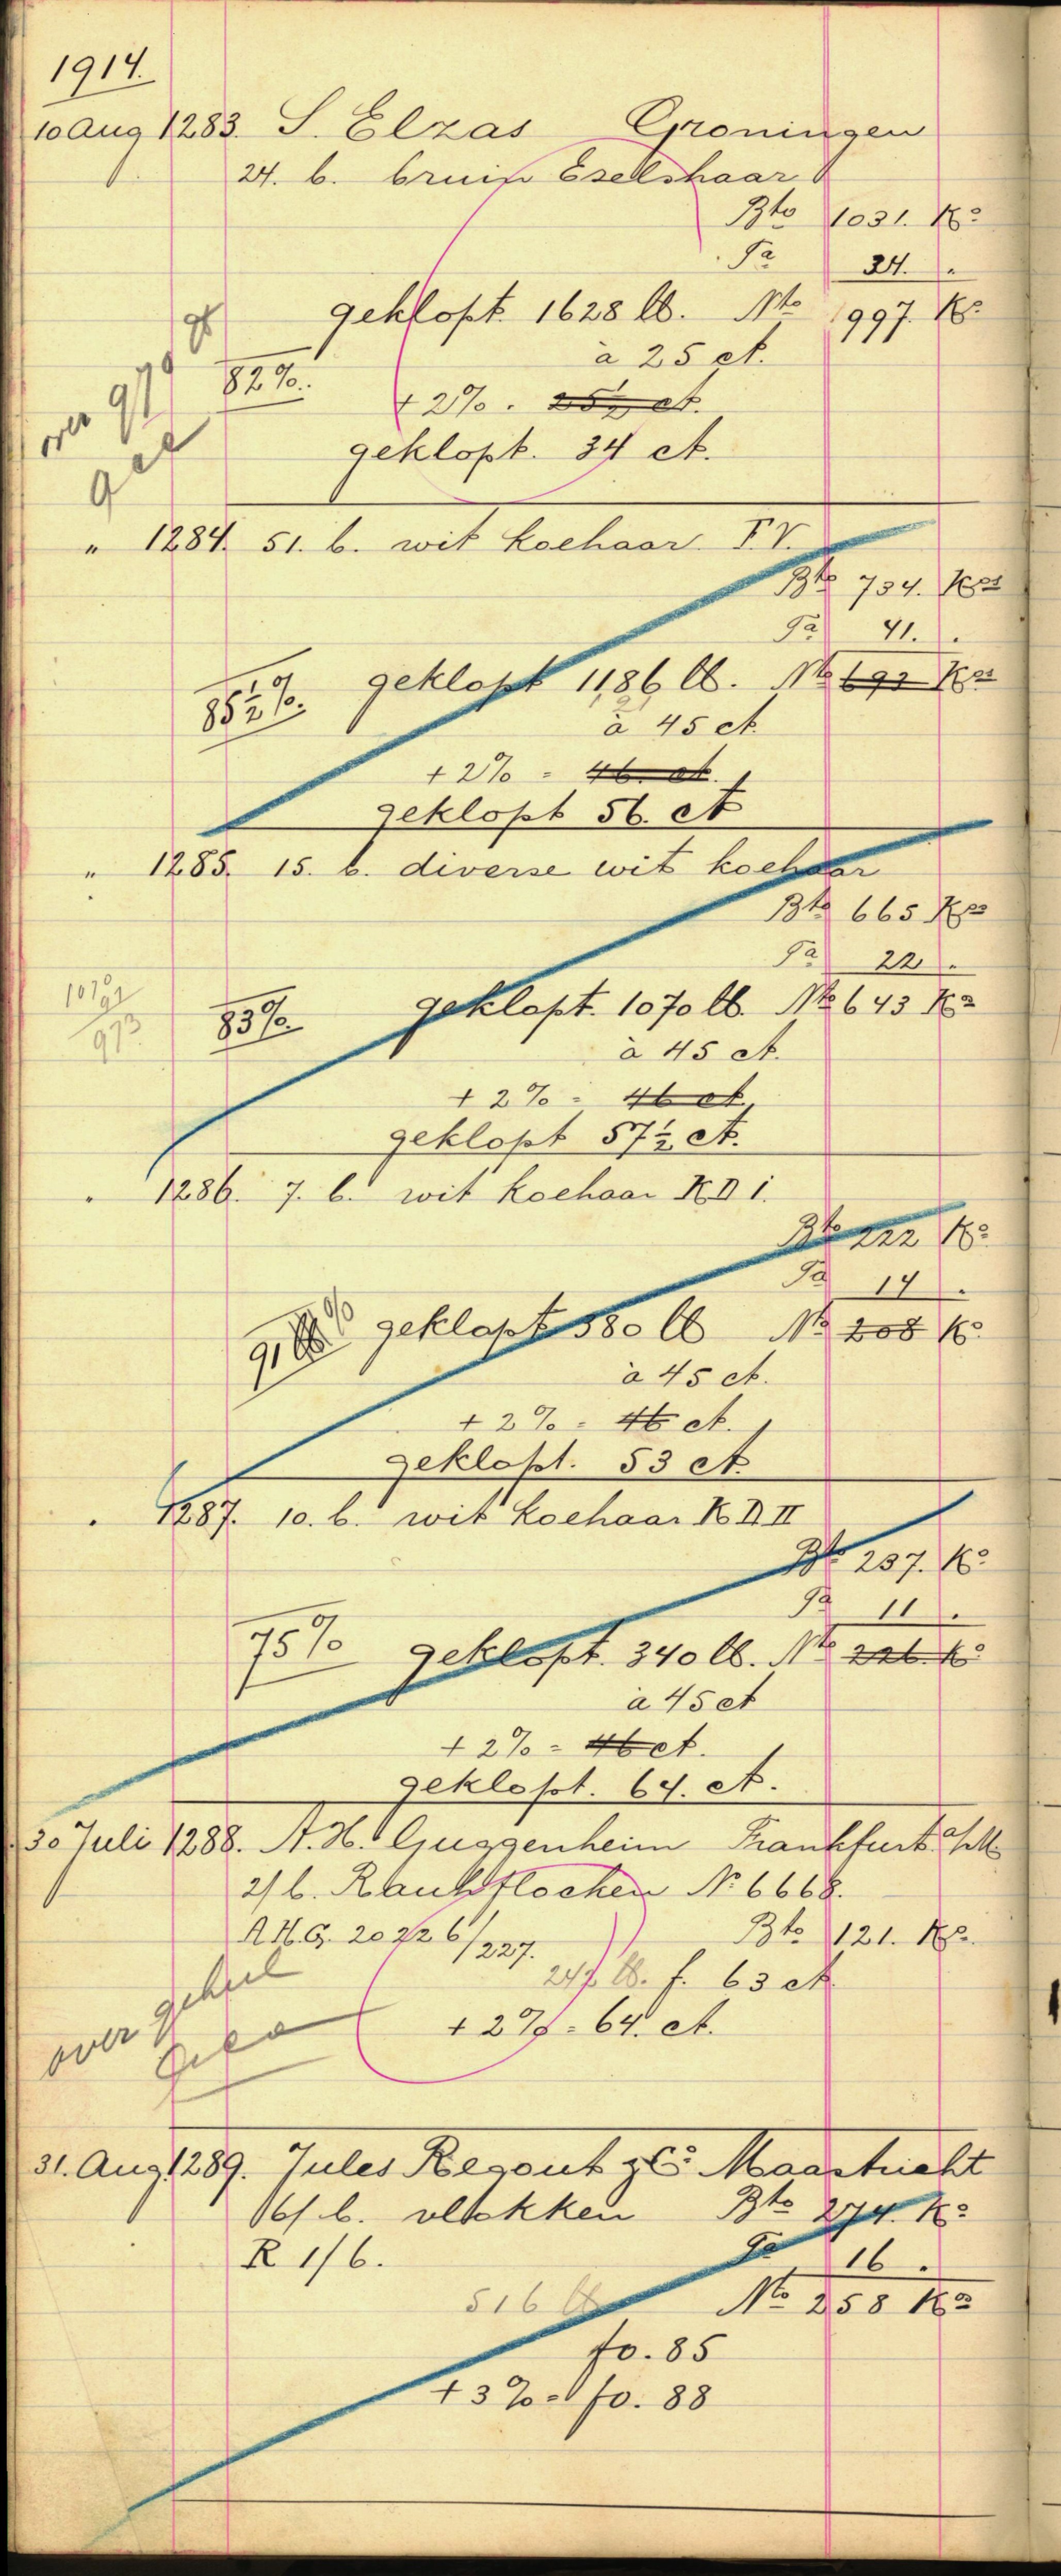 1914.
10 Aug 1283. S. Elzas Groningen
24. b. bruin Ezelshaar
Bto 1031. Ko
Ta 34. "
geklopt. 1628 lb. Nto 997. Ko
à 25 ct.
82%.
+ 2%. 25½ ct.
geklopt. 34 ct.
over 979
" 1284. 51. b. wit koehaar. F.V.
Bto 734. Kos
Ta 41. "
geklopt 1186 lb. Nto 693 Kos
85½%.
à 45 ct.
+ 2% = 46. ct.
geklopt 56. ct
" 1285. 15. b. diverse wit koehaar
Bto 665 Kos
Ta 22 "
geklopt. 1070 lb. Nto 643 Ko
1070
973
83%.
à 45 ct.
+ 2% = 46 ct.
geklopt 57½ ct.
" 1286. 7. b. wit koehaar K.D I.
Bto 222 Ko
Ta 14 "
geklopt 380 lb Nto 208 Ko
91
à 45 ct.
+ 2% = 46 ct.
geklopt. 53 ct.
" 1287. 10. b. wit koehaar K D II
Bto 237. Ko
Ta 11 "
75% geklopt. 340 lb. Nto 226. Ko
à 45 ct
+ 2% = 46 ct.
geklopt. 64. ct.
30 Juli 1288. A. H. Guggenheim Frankfurt a/M
2/ b. Rauhflocken No 6668.
A.H.G. 20226/227. Bto 121. Ko.
242 lb. f. 63 ct
+ 2% = 64. ct.
over geheel
31. Aug 1289. Jules Regout & Co Maastricht
16/ b. vlokken Bto 274. Ko
R 1/6. Ta 16 "
516 lb Nto 258 Ko
fo. 85
+ 3% = fo. 88